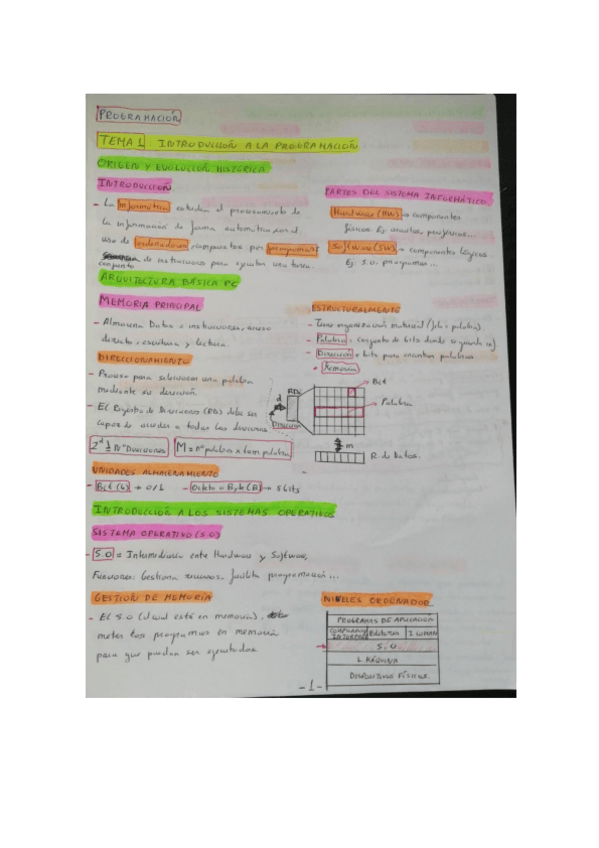 PROGRAMACIÓN
TEMA 1: INTRODUCCIÓN A LA PROGRAMACIÓN
ORIGEN Y EVOLUCIÓN HISTÓRICA
INTRODUCCIÓN
- La Informática estudia el procesamiento de
la información de forma automática con el
uso de ordenadores compuestos por programas:
conjunto de instrucciones para ejecutar una tarea.
PARTES DEL SISTEMA INFORMÁTICO
Hardware (HW) → componentes
físicos. Ej:
Software (SW) → componentes lógicos
Ej: S.O. programas...
ARQUITECTURA BÁSICA PC
MEMORIA PRINCIPAL
- Almacena Datos e instrucciones, acceso
directo, escritura y lectura.
DIRECCIONAMIENTO
- Proceso para seleccionar una palabra
mediante su dirección.
- El Registro de Direcciones (RD) debe ser
capaz de acceder a todas las direcciones
2^d ≥ Nº Direcciones
M = nº palabras x tam palabra
ESTRUCTURALMENTE
- Tiene organización matricial
- Palabra = conjunto de bits donde se guarda
- Dirección = bits para encontrar palabras.
• Memoria
Bit
RD
Palabra
d
Dirección
m
R. de Datos.
UNIDADES ALMACENAMIENTO
- Bit (b) → 0/1
- Octeto = Byte (B) → 8 bits
INTRODUCCIÓN A LOS SISTEMAS OPERATIVOS
SISTEMA OPERATIVO (S.O)
- S.O = Intermediario entre Hardware y Software.
Funciones: Gestiona recursos, facilita programación...
GESTIÓN DE MEMORIA
- El S.O (el cual está en memoria),
meter los programas en memoria
para que puedan ser ejecutados.
NIVELES ORDENADOR
PROGRAMAS DE APLICACIÓN
EDITORES
S.O
L. MÁQUINA
DISPOSITIVOS FÍSICOS.
- 1 -